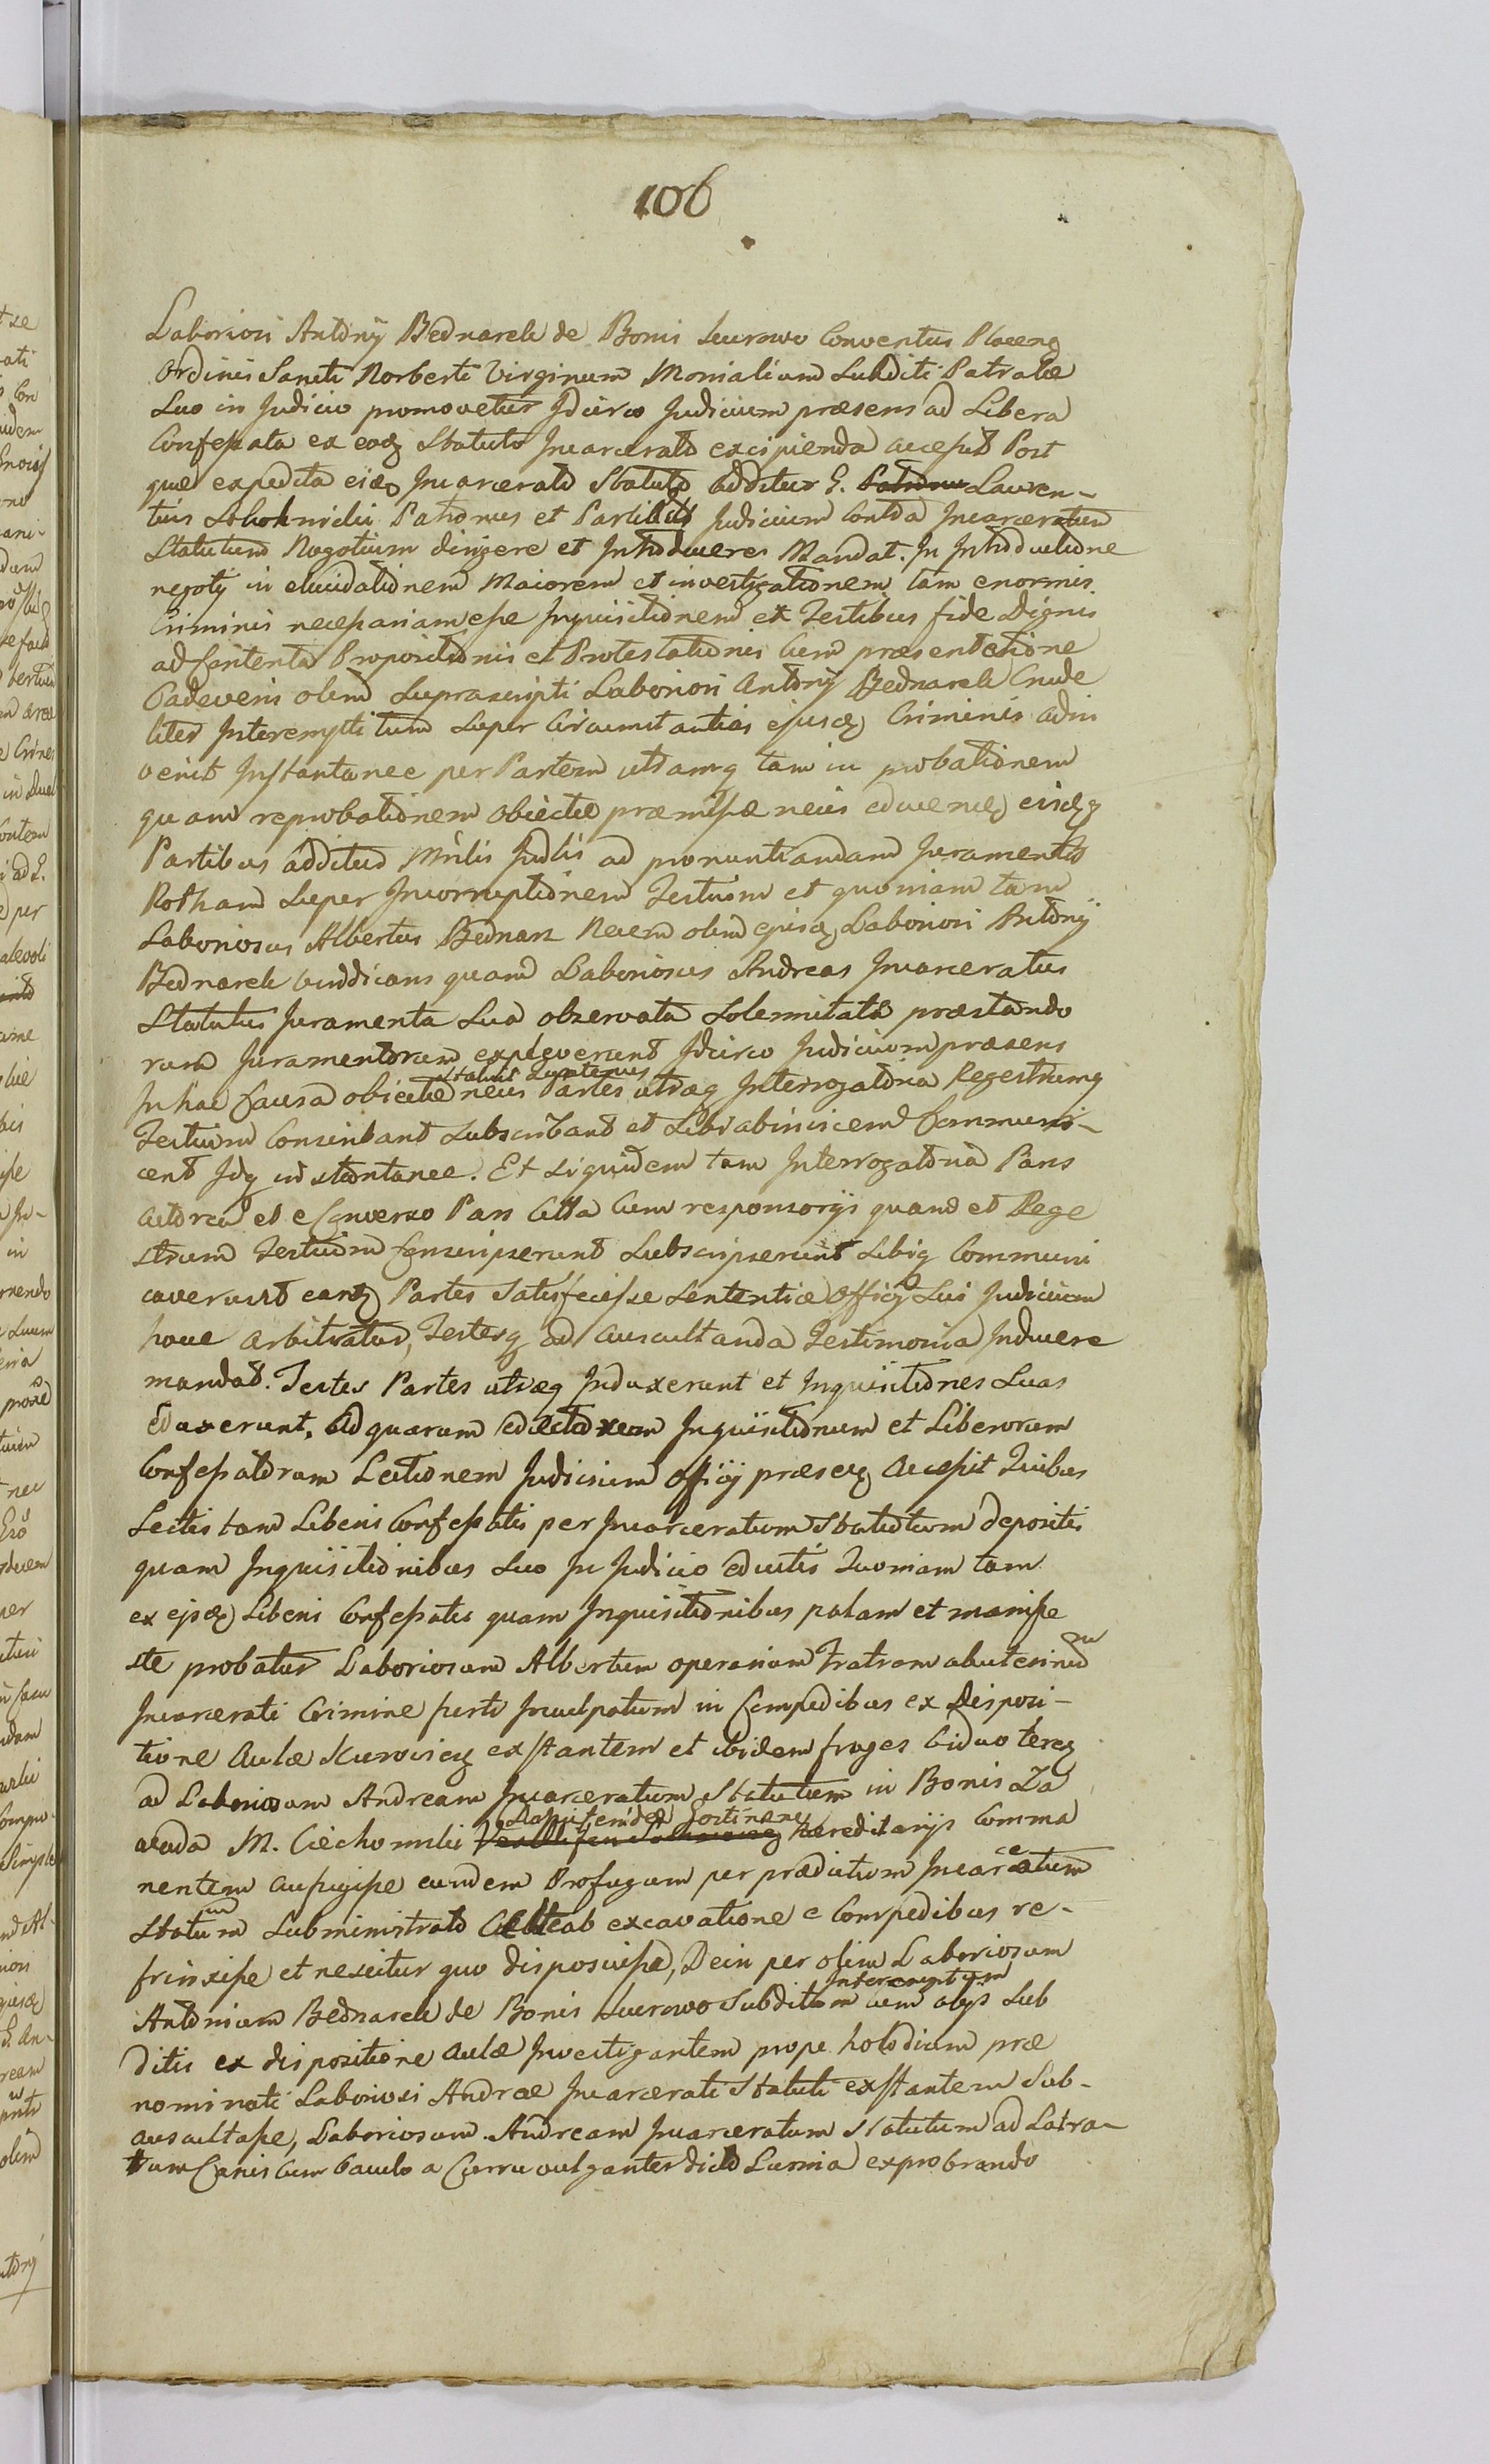 106
Laboriosi Antonij Bednarek de Bonis Scurowo Conventus Plocens
Ordinis Sancti Norberti Virginum Monialium Subditi Patratæ
Suo in Judicio promovetur Idcirco Judicium præsens ad Libera
Confessata ex eoq Statuto Incarcerato excipienda accessit Post
quæ expedita eisq Incarcerato Statuto additur G. Lauren-
tius Patronus et Partibus Judicium Contra Incarceratum
Statutum Negotium dirigere et Introducere Mandat. In Introductione
negotij in elucidationem Maiorem et investigationem tam enormis
Criminis necessariam esse Inquisitionem ex Testibus fide Dignis
ad Contenta Propositionis et Protestationis Cum præsentatione
Cadaveris olim Suprascripti Laboriosi Antonij Bednarek Crude
liter Interempti tum Super Circumstantias ejusq Criminis adin
venit Instantanee per Partem utramq tam in probationem
quam reprobationem obiectæ præmissæ necis educenq eisq
Partibus additus Mnlis Judlis ad pronuntiandam Juramenti
Rotham Super Incorruptionem Testium et quoniam tam
Laboriosus Albertus Bednarz Necem olim ejusq Laboriosi Antonij
Bednarek vindicans quam Laboriosus Andreas Incarceratus
Statutus Juramenta Sua observata Solennitate præstando
rum Juramentorum expleverunt Idcirco Judicium præsens
statuit quatenus
In hac Causa obiectæ necis Partes utræq Interrogatoria Regestrumq
Testium Conscribant Subscribant et Sibi abinvicem Communi-
cent Idq instantanee. Et Siquidem tam Interrogatoria Pars
Actorea et e Converso Pars Citta Cum responsorijs quam et Rege
strum Testium Conscripserunt Subscripserunt Sibiq Communi
caverunt easq Partes Satisfecisse Sententiæ Officij Sui Judicium
hocce arbitratur, Testesq ad auscultanda Testimonia Inducere
mandat. Testes Partes utræq Induxerunt et Inquisitiones Suas
Eduxerunt. Ad quarum Inquisitionum et Liberorum
Confessatorum Lectionem Judicium Officij præsens accessit Quibus
Lectis tam Liberis Confessatis per Incarceratum Statutum depositis
quam Inquisitionibus Suo In Judicio eductis Quoniam tam
ex ejsq Liberis Confessatis quam Inquisitionibus palam et manife
ste probatur Laboriosum Albertum operarium Fratrem abuterinum
Incarcerati Crimine furti Inculpatum in Compedibus ex Disposi-
tione Aulæ Scuroviens exstantem et ibidem fruges
ad Laboriosum Andream Incarceratum Statutum in Bonis Za
wada M. Ciechomski hæreditarijs Comma
nentem aufugisse eundem Profugum per prædictum Incarceratum
Statutum Subministrato ab excavatione e Compedibus re-
frinxisse et nescitur quo disposuisse, Dein per olim Laboriosum
Interemptum
Antonium Bednarek de Bonis Scurowo Subditum cum alijs Sub
ditis ex dispositione Aulæ Investigantem prope hospodium præ
nominati Laboriosi Andreæ Incarcerati Statuti exstantem Sub-
auscultasse, Laboriosum Andream Incarceratum Statutum ad Latra-
tum Canis Cum baculo a Curru vulganter dicto Lusnia exprobrando